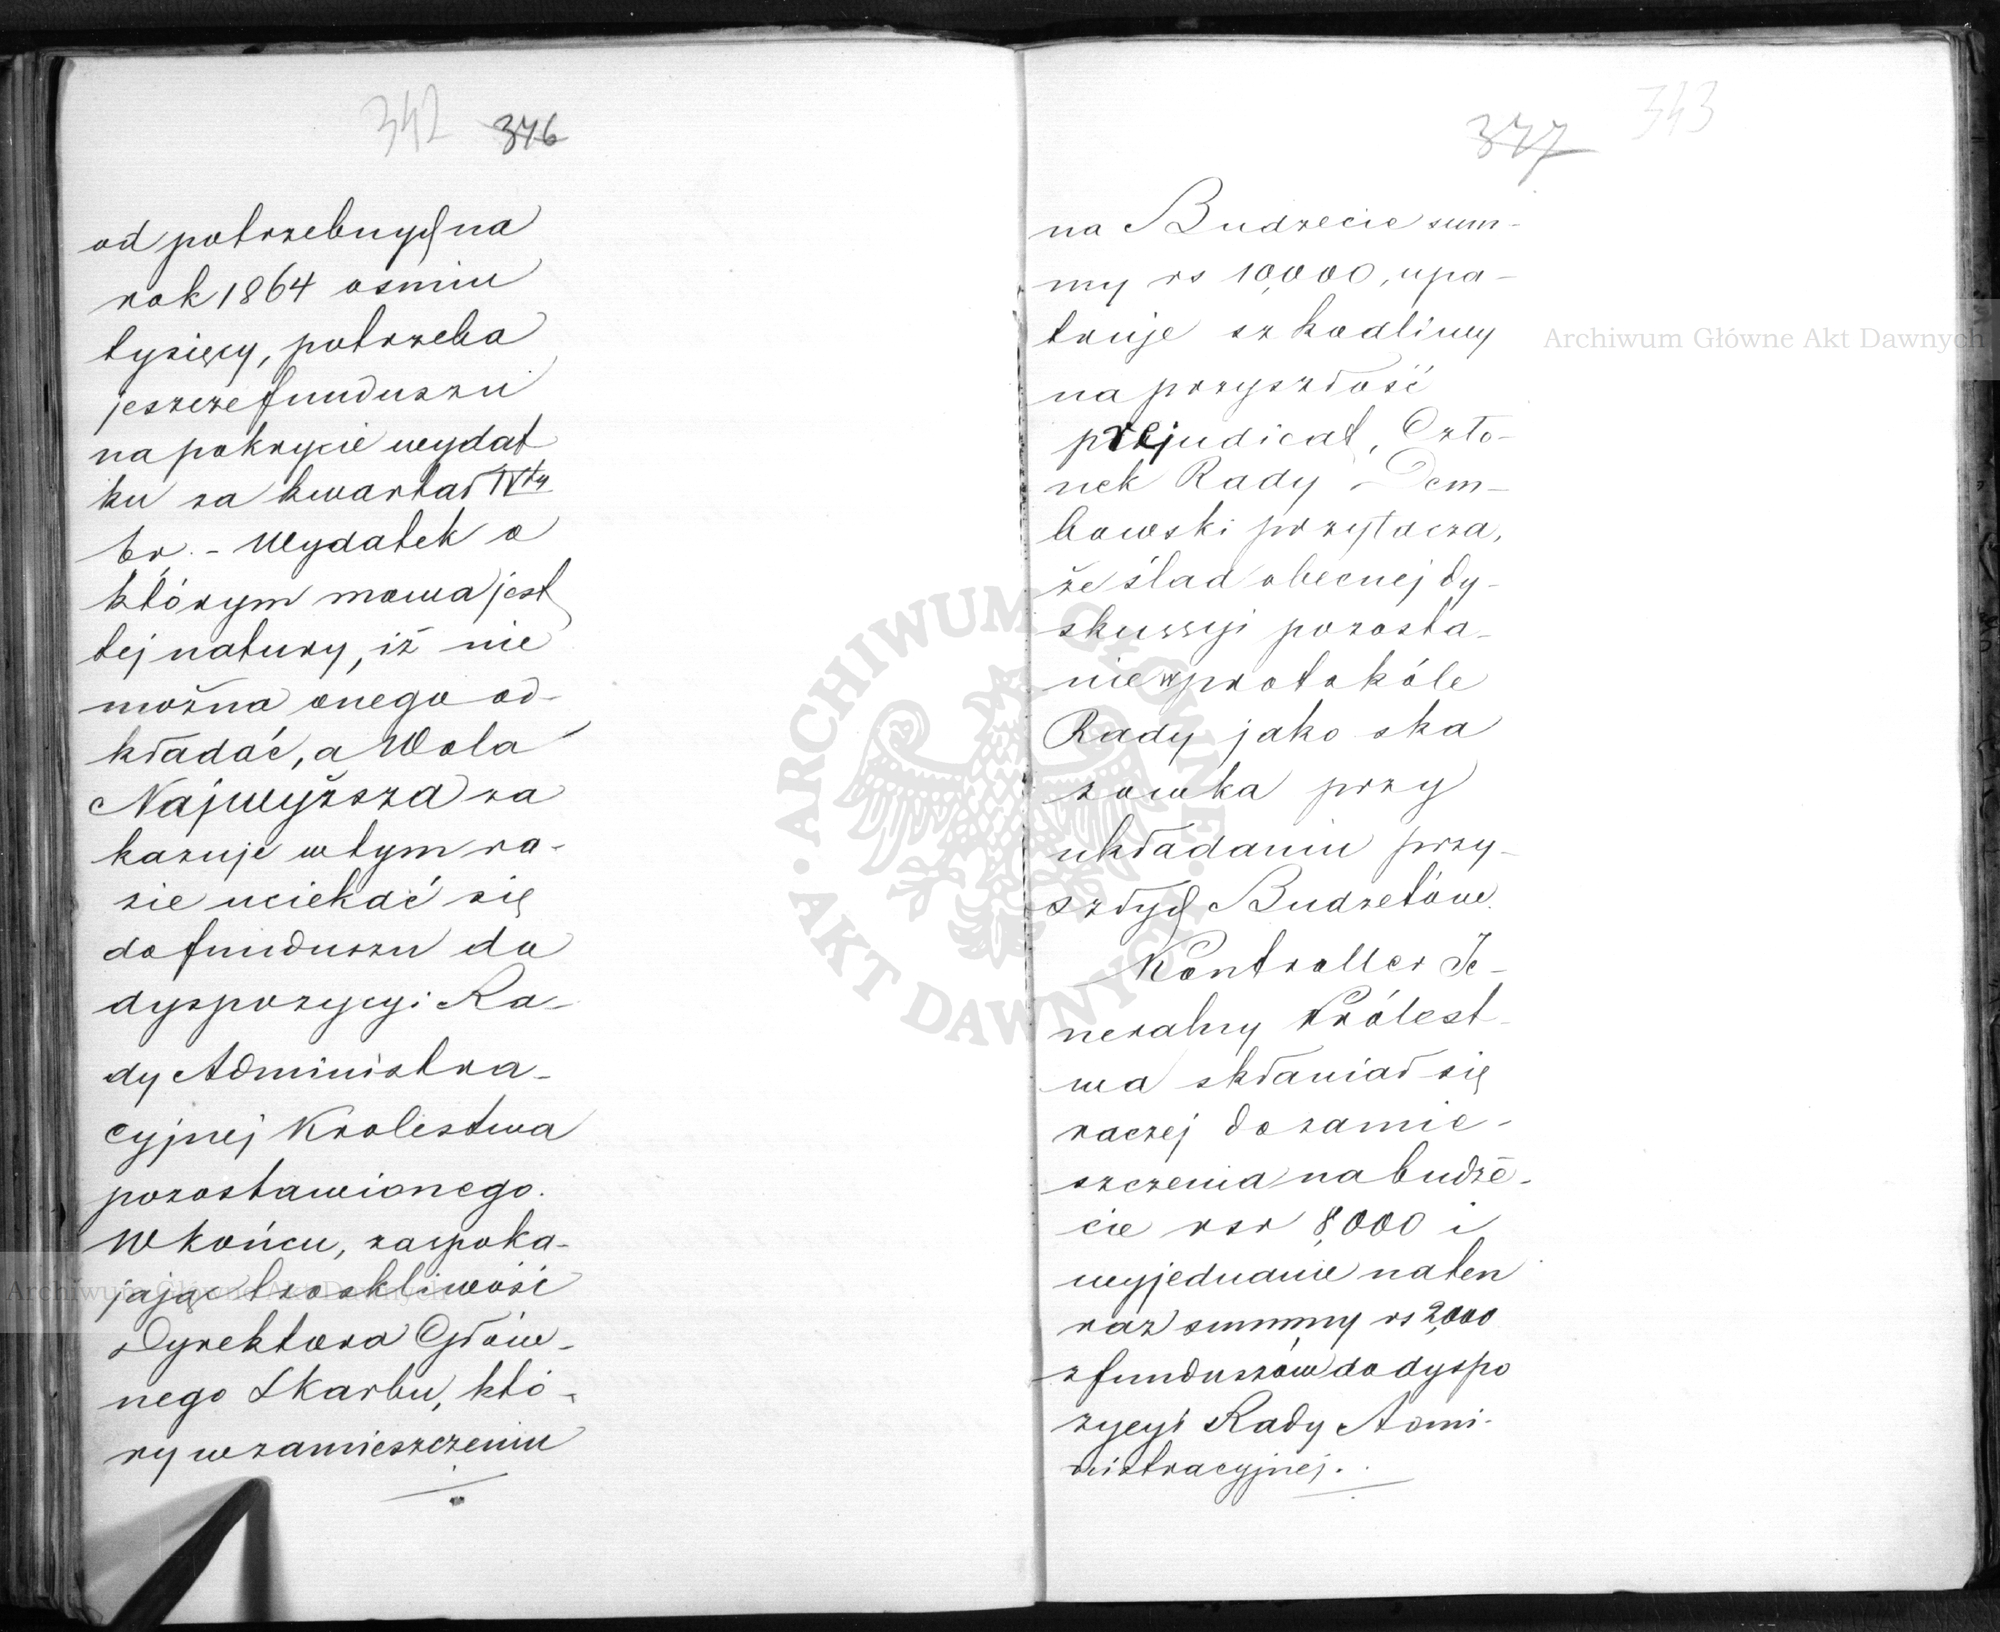 342 376
od potrzebnych na
rok 1864 osmiu
tysięcy, potrzeba
jeszcze funduszu
na pokrycie wydat
ku za kwartał IVty
br. – Wydatek o
którym mowa jest
tej natury, iż nie
można onego od-
kładać, a Wola
Najwyższa za
kazuje w tym ra-
zie uciekać się
do funduszu do
dyspozycyi Ra-
dy Administra-
cyjnej Krolestwa
pozostawionego.
W końcu, zaspoka-
jając troskliwość
Dyrektora Głów-
nego Skarbu, któ-
ry w zamieszczeniu
377 343
na Budżecie sum-
my rs 10,000, upa-
truje szkodliwy
na przyszłość
prejudicat, Czło-
nek Rady Dem-
bowski przytacza,
że ślad obecnej dy-
skussyi pozosta-
nie w protokóle
Rady jako ska
zowka przy
układaniu przy-
szłych Budżetów.
Kontroller Je-
neralny Królest-
wa skłaniał się
raczej do zamie-
szczenia na budże-
cie rsr 8,000 i
wyjednanie na ten
raz summy rs 2,000
z funduszów do dyspo
zycyi Rady Admi-
nistracyjnej.
Archiwum Główne Akt Dawnych
ARCHIWUM GŁÓWNE AKT DAWNYCH
Archiwum Główne Akt Dawnych